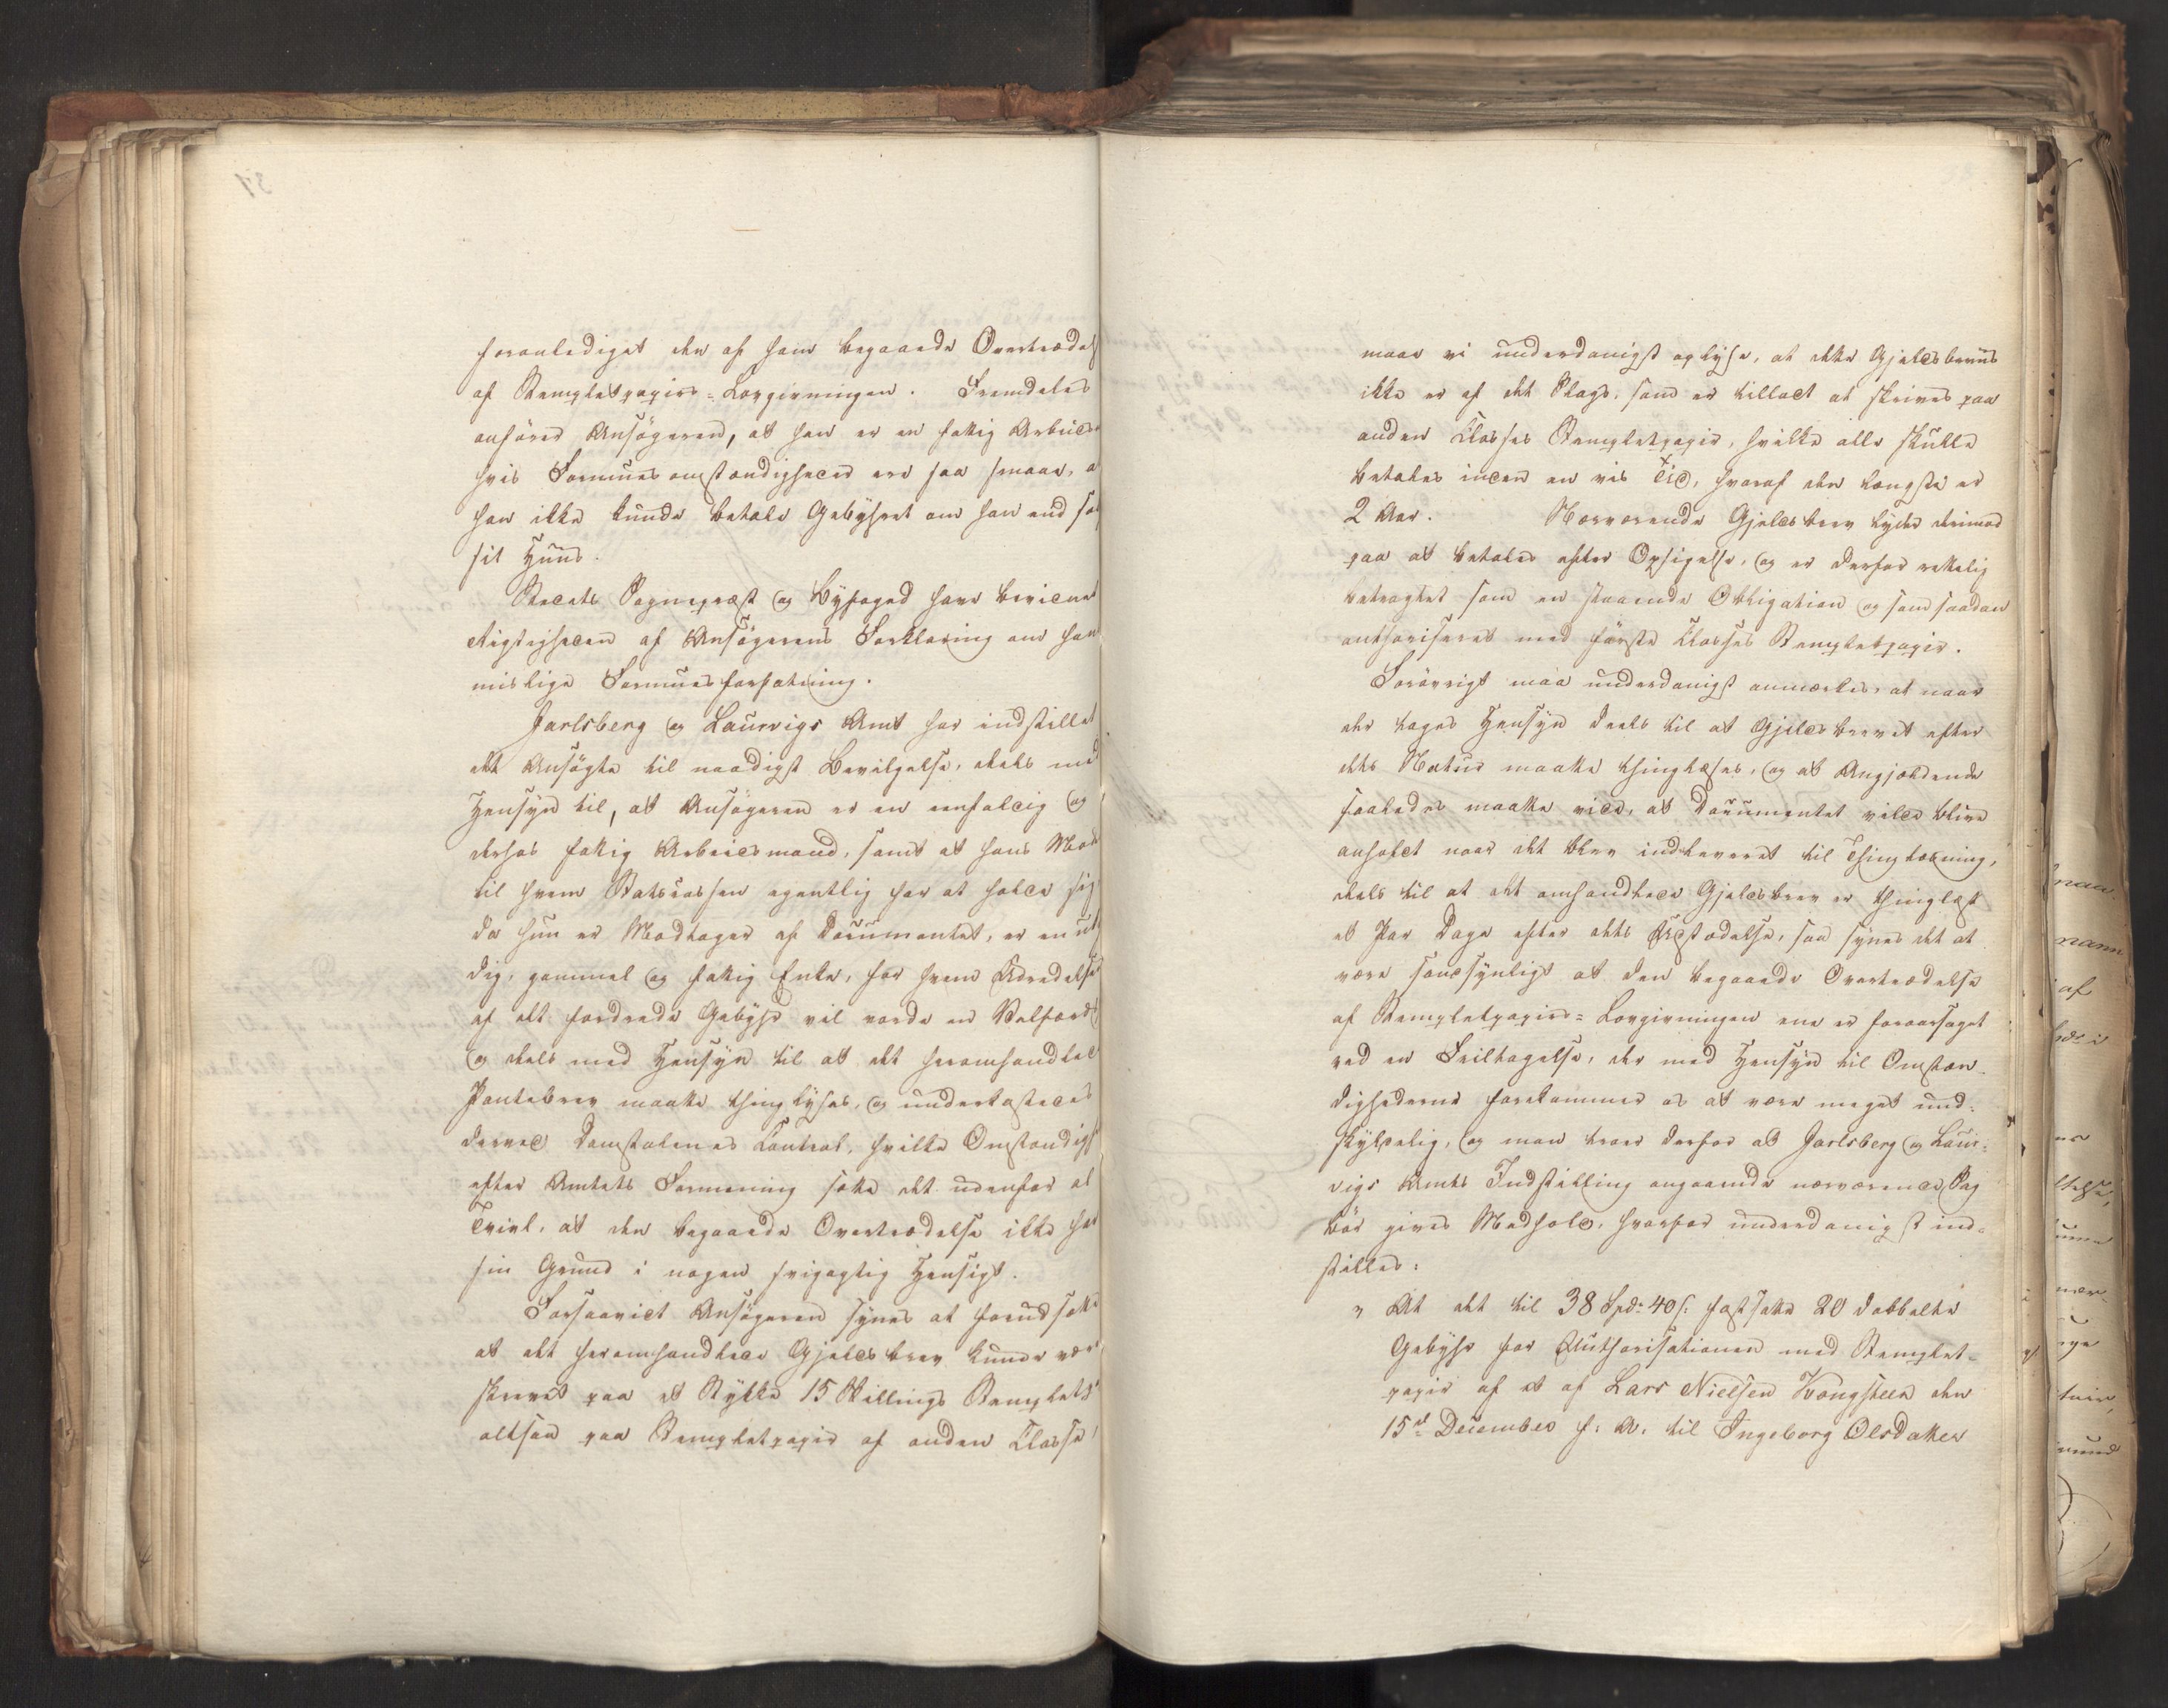 foranlediget den af ham begaaede Overtrædels
af Stempletpapirs-Lovgivningen. Fremdeles
anfører Ansøgeren, at han er en fattig Arbeids
hvis Formuesomstændigheder ere saa smaae, a
han ikke kunde betale Gebyhret om han end sol
sit Huus.
Stedets Sognepræst og Byfoged have bevidnet
Rigtigheden af Ansøgerens Forklaring om han
mislige Formuesforfatning.
Jarlsberg og Laurvigs Amt har indstillet
det Ansøgte til naadigst Bevilgelse, deels med
Hensyn til, at Ansøgeren er en eenfoldig og
derhos fattig Arbeidsmand, samt at hans Mod
til hvem Statscassen egentlig har at holde sig
da hun er Modtager af Documentet, er en
dig, gammel og fattig Enke, for hvem Udredelse
af det fordrede Gebyhr vil vorde en Velfærds
og deels med Hensyn til at det heromhandlede
Pantebrev maatte thinglyses, og underkastedes
derved Domstolenes Control, hvilke Omstændigh
efter Amtets Formening sætte det udenfor al
Tvivl, at den begaaede Overtrædelse ikke har
sin Grund i nogen svigagtig Hensigt.
Forsaavidt Ansøgeren synes at forudsætte
at det heromhandlede Gjeldsbrev kunde være
skrevet paa et Stykke 15 Skillings Stemplet
altsaa paa Stempletpapir af anden Classe,
maae vi underdanigst oplyse, at dette Gjeldsbreviis
ikke er af det Slags, som er tilladt at skrives paa
anden Classes Stempletpapir, hvilke alle skulle
betales inden en vis Tid, hvoraf den længste er
2 Aar. Nærværende Gjeldsbrev lyder derimod
paa at betales efter Opsigelse, og er derfor rettelig
betragtet som en staaende Obligation og som saadan
authoriseret med første Classes Stempletpapir.
Forøvrigt maa underdanigst anmærkes, at naar
der tages Hensyn deels til at Gjeldsbrevet efter
dets Natur maatte thinglæses, og at Angjældende
saaledes maatte vide, at Documentet vilde blive
anholdt naar det blev indleveret til Thinglæsning,
deels til at det omhandlede Gjeldsbrev er thinglæst
et Par Dage efter dets Udstædelse, saa synes det at
være sandsynligt at den begaaede Overtrædelse
af Stempletpapirs-Lovgivningen ene er foraarsaget
ved en Feiltagelse, der med Hensyn til Omstæn-
dighederne forekommer os at være meget und-
skyldelig, og man troer derfor at Jarlsberg og Laur-
vigs Amts Indstilling angaaende nærværende Sag
bør gives Medhold, hvorfor underdanigst ind-
stilles:
" At det til 38 Spd: 40 s: fastsatte 20 dobbelte
Gebyhr for Authorisationen med Stemplet-
papir af et af Lars Nielsen Kongsteen den
15de December f: A: til Ingeborg Olsdatter